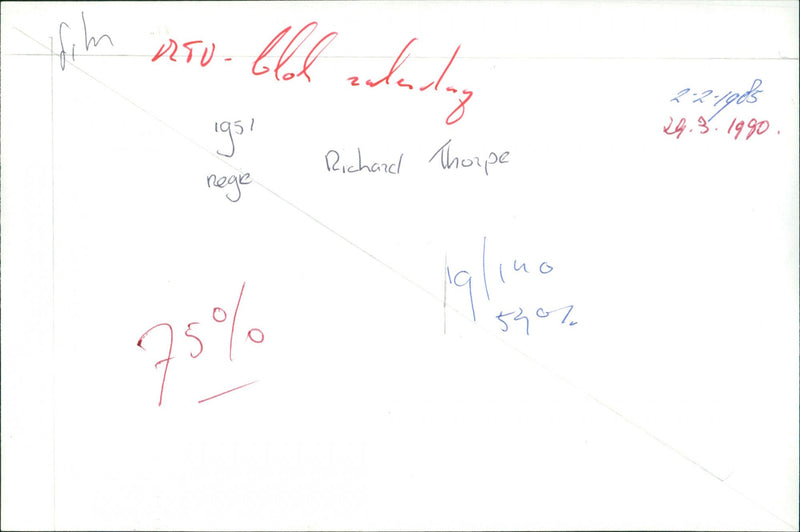 film RTV - blok zaterdag
2-2-1985
29.3.1990.
1951
regie Richard Thorpe
19/140
75%